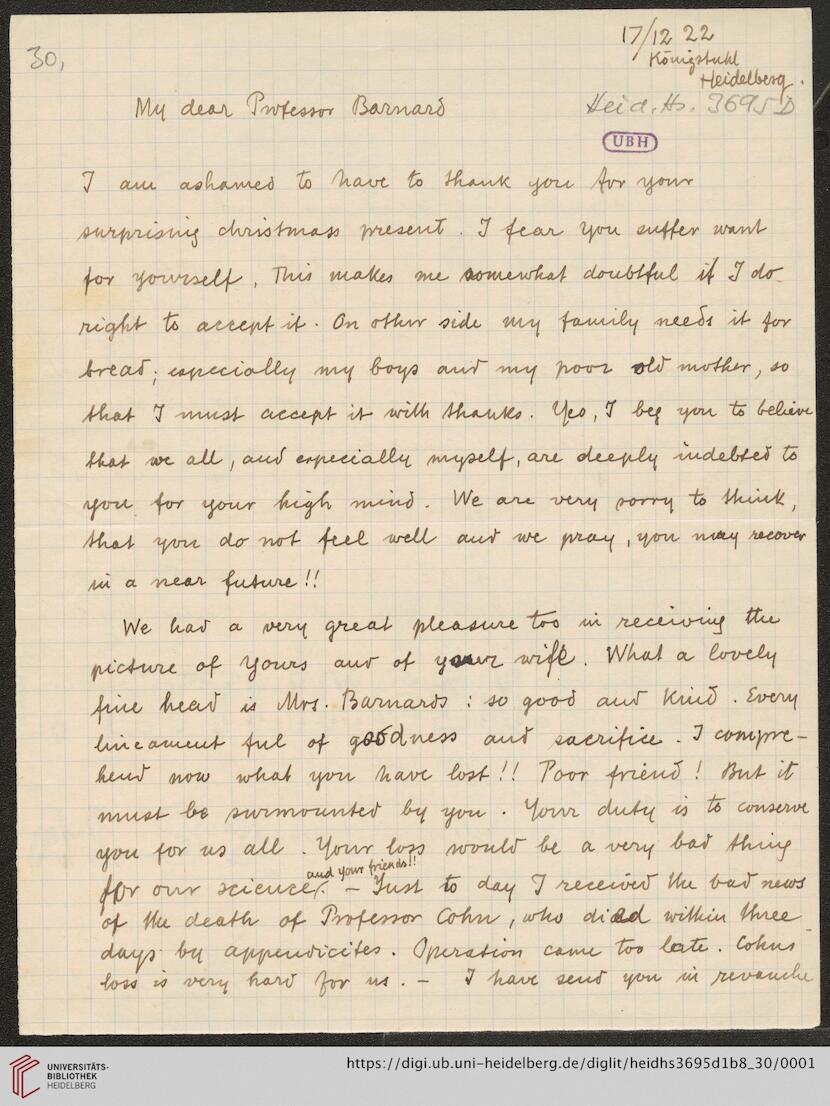 30,
17/12 22
Königstuhl
Heidelberg.
Heid. Hs. 3695 D
UBH
My dear Professor Barnard
I am ashamed to have to thank you for your
surprising christmass present. I fear you suffer want
for yourself, This makes me somewhat doubtful if I do
right to accept it. On other side my family needs it for
bread; especially my boys and my poor old mother, so
that I must accept it with thanks. Yes, I beg you to believe
that we all, and especially myself, are deeply indebted to
you for your high mind. We are very sorry to think,
that you do not feel well and we pray, you may recover
in a near future!!
We had a very great pleasure too in receiving the
picture of yours and of your wife. What a lovely
fine head is Mrs. Barnards: so good and kind. Every
lineament ful of goodness and sacrifice. I compre-
hend now what you have lost!! Poor friend! But it
must be surmounted by you. Your duty is to conserve
you for us all. Your loss would be a very bad thing
for our science and your friends!!. – Just to day I received the bad news
of the death of Professor Cohn, who died within three
days by appendicites. Operation came too late. Cohns
loss is very hard for us. – I have send you in revanche
UNIVERSITÄTS-
BIBLIOTHEK
HEIDELBERG
https://digi.ub.uni-heidelberg.de/diglit/heidhs3695d1b8_30/0001